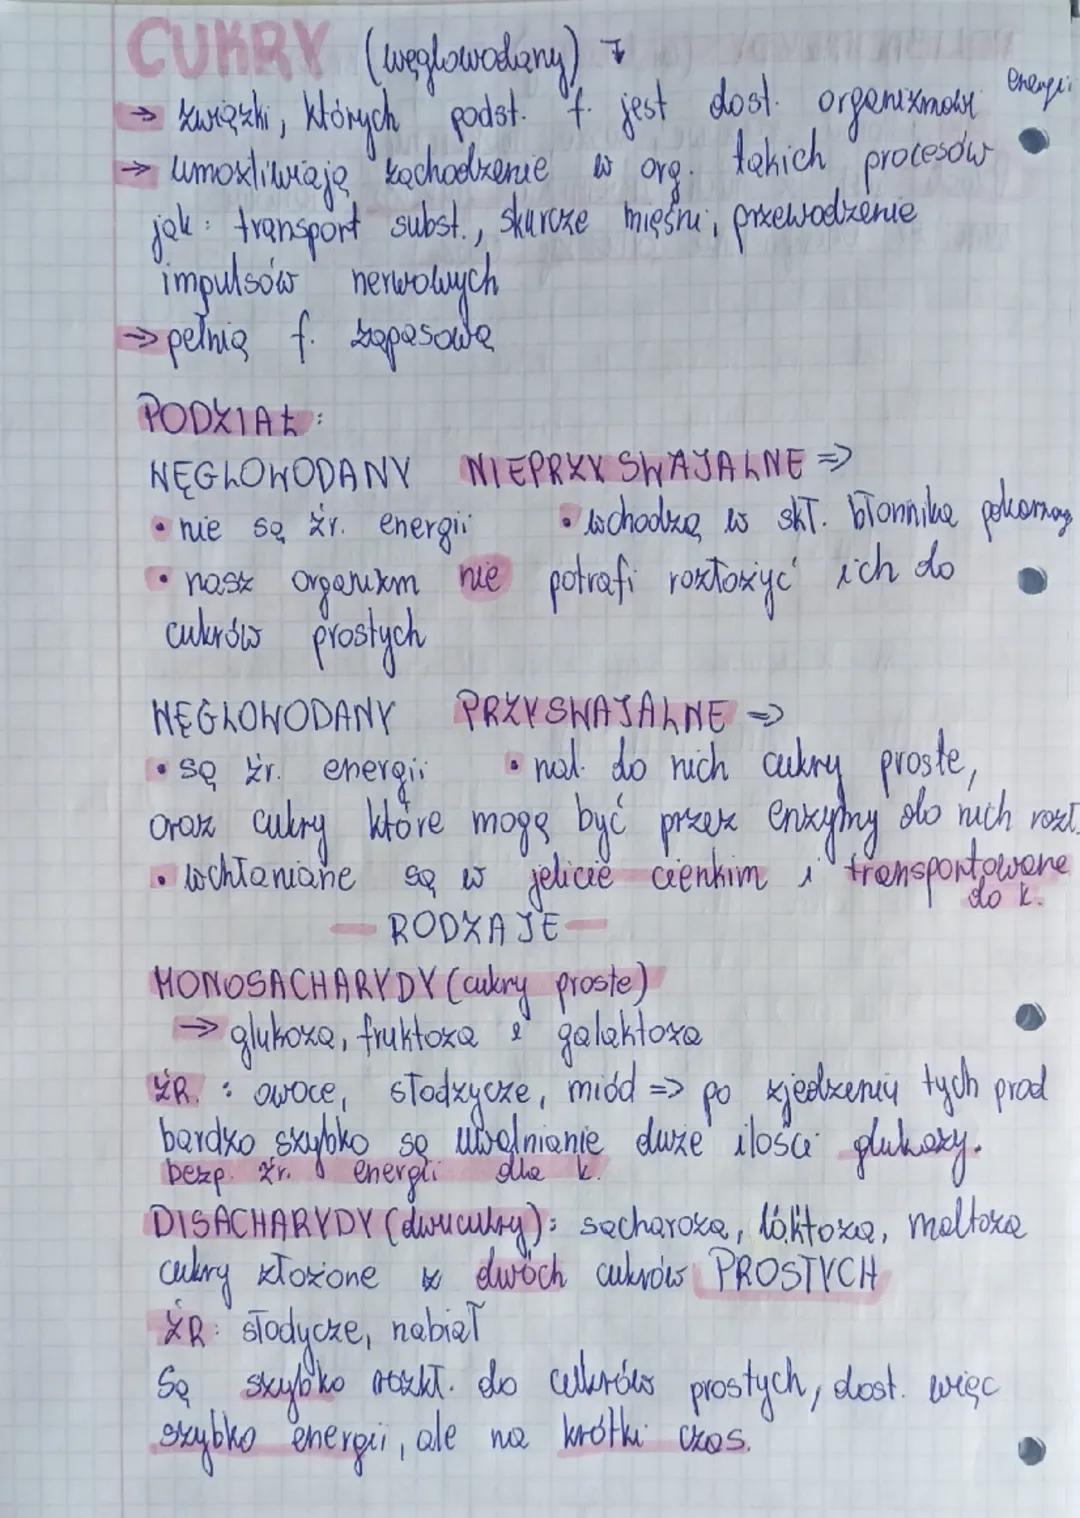 CUKRY (węglowodany) ↴
→ związki, których podst. f. jest dost. organizmowi energii
→ umożliwiają zachodzenie w org. takich procesów
jak: transport subst., skurcze mięśni, przewodzenie
impulsów nerwowych
→ pełnią f. zapasową
PODZIAŁ:
WĘGLOWODANY NIEPRZYSWAJALNE ⇒
• nie są źr. energii • wchodzą w skł. błonnika pokarmow
• nasz organizm nie potrafi rozłożyć ich do
cukrów prostych
WĘGLOWODANY PRZYSWAJALNE ⇒
• są źr. energii • nal. do nich cukry proste,
oraz cukry które mogą być przez enzymy do nich rozł.
• wchłaniane są w jelicie cienkim i transportowane
do k.
— RODZAJE —
MONOSACHARYDY (cukry proste)
→ glukoza, fruktoza i galaktoza
ŹR. : owoce, słodzycze, miód => po zjedzeniu tych prod
bardzo szybko są uwalnianie duże ilości glukozy.
bezp. źr. energii dla k.
DISACHARYDY (dwucukry): sacharoza, laktoza, maltoza
cukry złożone z dwóch cukrów PROSTYCH
ŹR: słodycze, nabiał
Są szybko rozkł. do cukrów prostych, dost. więc
szybko energii, ale na krótki czas.